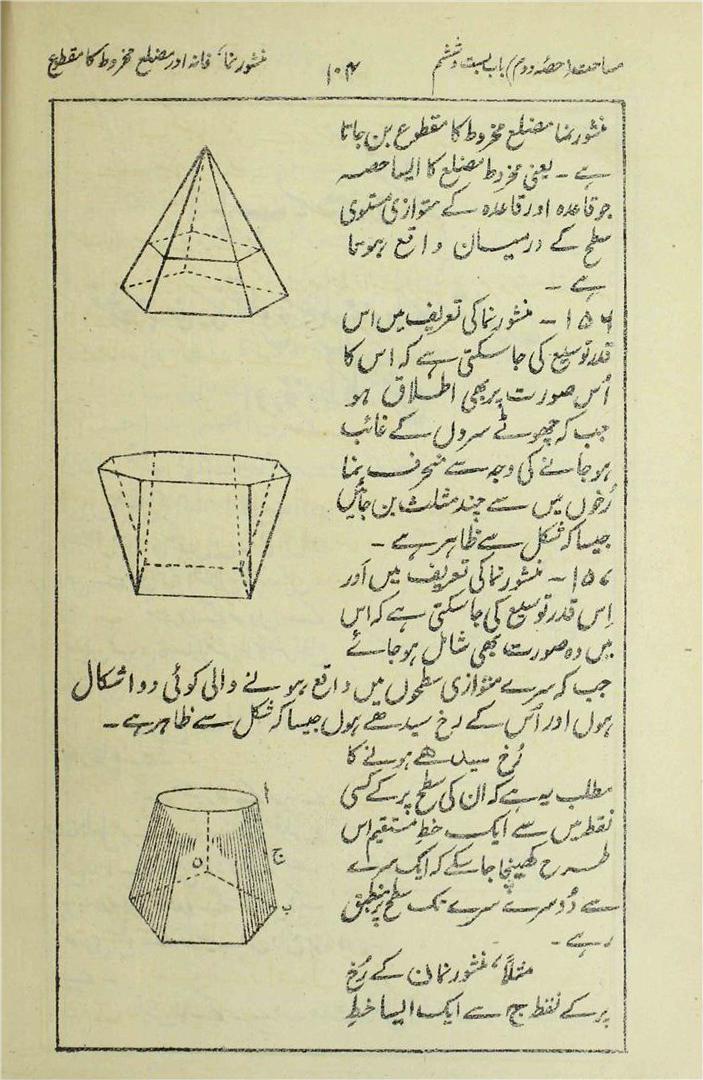 مساحت (حصہ دوم) باب بست و ششم
۱۰۴
منشور نما، فانہ اور مضلع مخروط کا مقطوع
منشور نما مضلع مخروط کا مقطوع بن جاتا
ہے ۔ یعنی مخروط مضلع کا ایسا حصہ
جو قاعدہ اور قاعدہ کے متوازی مستوی
سطح کے درمیان واقع ہوتا
ہے ۔
۱۵۶ ۔ منشور نما کی تعریف میں اس
قدر توسیع کی جاسکتی ہے کہ اس کا
اُس صورت پر بھی اطلاق ہو
جب کہ چھوٹے سروں کے غائب
ہو جانے کی وجہ سے منحرف نما
رُخوں میں سے چند مثلث بن جائیں
جیسا کہ شکل سے ظاہر ہے ۔
۱۵۷ ۔ منشور نما کی تعریف میں اَور
اِس قدر توسیع کی جاسکتی ہے کہ اس
میں وہ صورت بھی شامل ہو جائے
جب کہ سرے متوازی سطحوں میں واقع ہونے والی کوئی دو اشکال
ہوں اور اُس کے رخ سیدھے ہوں جیسا کہ شکل سے ظاہر ہے ۔
رُخ سیدھے ہونے کا
مطلب یہ ہے کہ ان کی سطح پر کے کسی
نقطہ میں سے ایک خطِ مستقیم اس
طرح کھینچا جاسکے کہ ایک سرے
سے دُوسرے سرے تک سطح پر منطبق
رہے ۔
مثلاً، منشور نما ن کے رُخ
پر کے نقطہ ج سے ایک ایسا خطِ
ا
ج
ن
ب